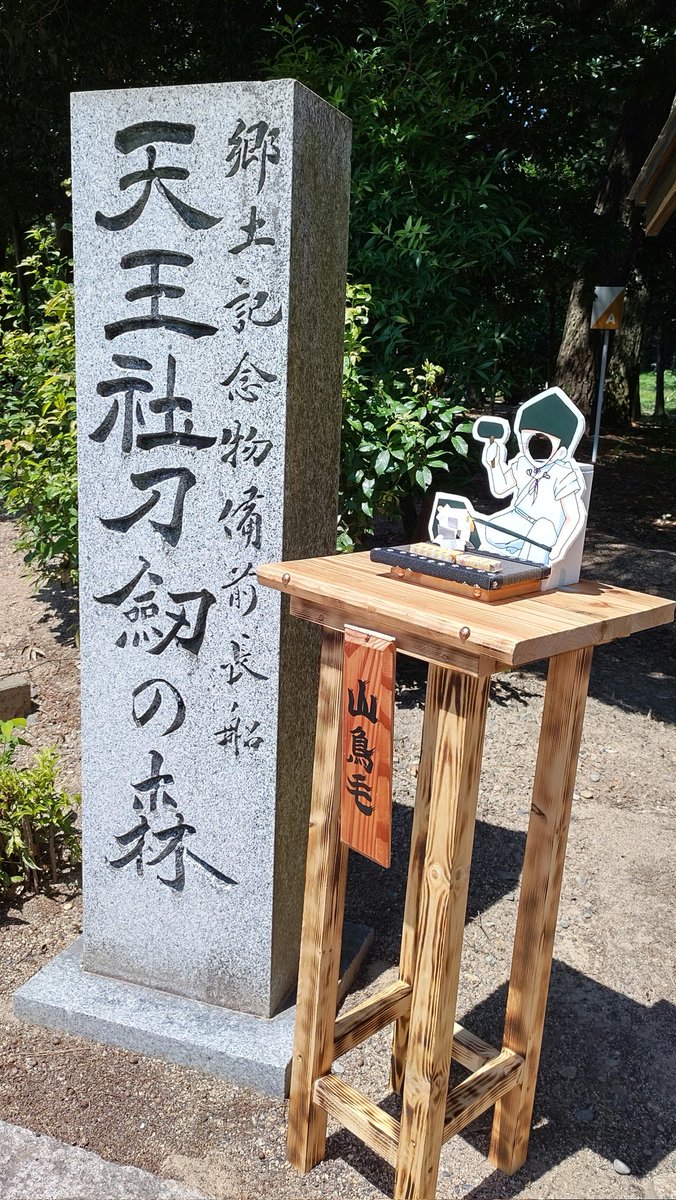 郷土記念物備前長船
天王社刀劔の森
山鳥毛
A